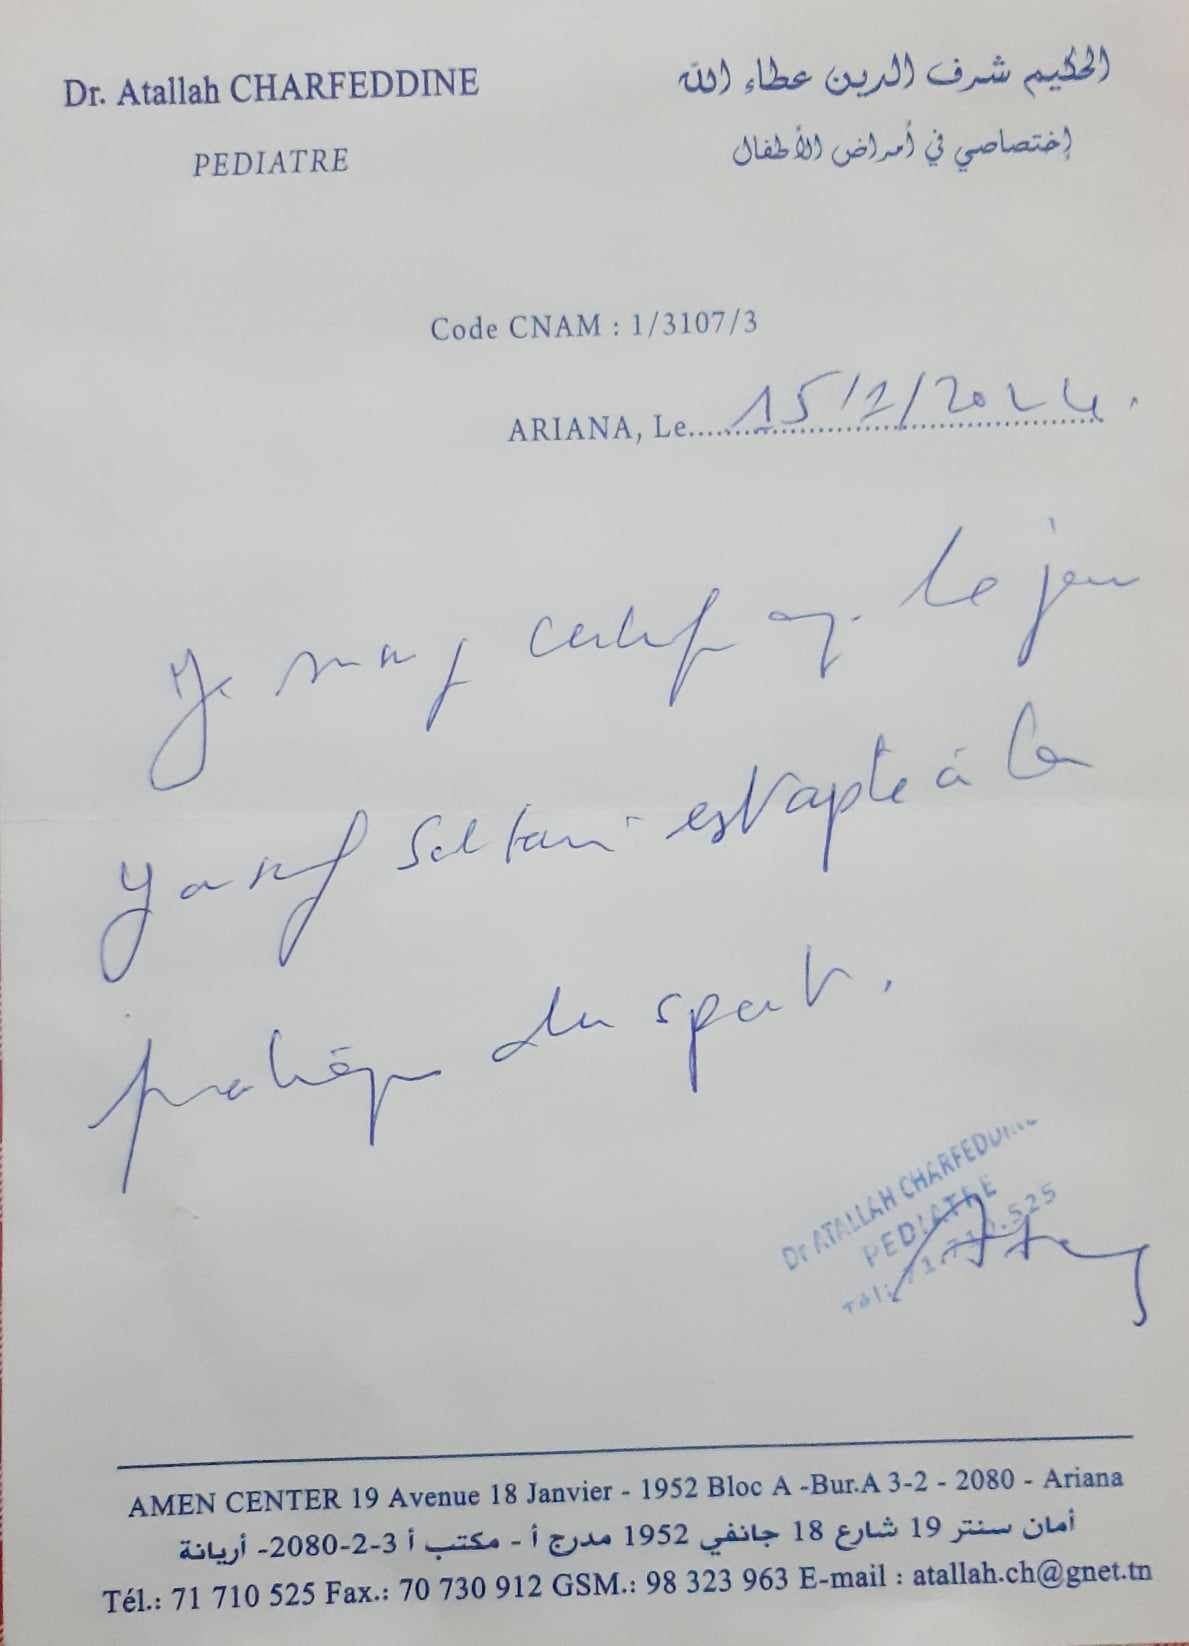 Dr. Atallah CHARFEDDINE
الحكيم شرف الدين عطاء الله
PEDIATRE
إختصاصي في أمراض الأطفال
Code CNAM : 1/3107/3
ARIANA, Le 15/2/2024.
Je certif q. le jeu
Yousef Soltani est apte à la
pratique du sport.
Dr ATALLAH CHARFEDDINE
PEDIATRE
Tél: 71.710.525
AMEN CENTER 19 Avenue 18 Janvier - 1952 Bloc A -Bur.A 3-2 - 2080 - Ariana
أمان سنتر 19 شارع 18 جانفي 1952 مدرج أ - مكتب أ 3-2-2080- أريانة
Tél.: 71 710 525 Fax.: 70 730 912 GSM.: 98 323 963 E-mail : atallah.ch@gnet.tn